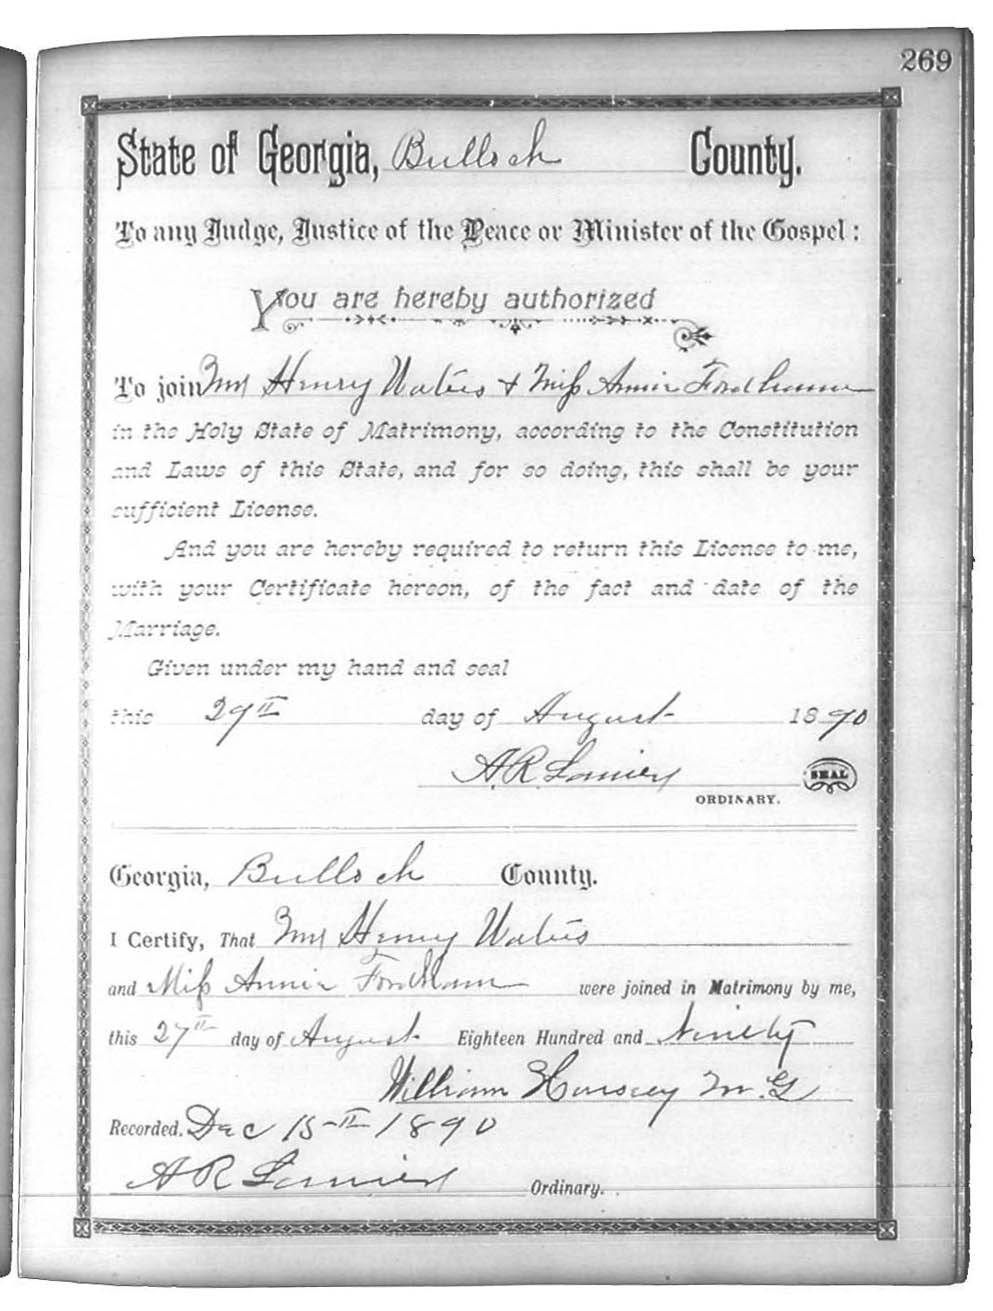 269
State of Georgia, Bulloch County.
To any Judge, Justice of the Peace or Minister of the Gospel:
You are hereby authorized
To join Mr Henry Waters & Miss Annie Fordham
in the Holy State of Matrimony, according to the Constitution
and Laws of this State, and for so doing, this shall be your
sufficient License.
And you are hereby required to return this License to me,
with your Certificate hereon, of the fact and date of the
Marriage.
Given under my hand and seal
this 29th day of August 1890
A. R. Lanier SEAL
ORDINARY.
Georgia, Bulloch County.
I Certify, That Mr Henry Waters
and Miss Annie Fordham were joined in Matrimony by me,
this 27th day of August Eighteen Hundred and Ninety
William M. G.
Recorded. Dec 15th 1890
A R Lanier Ordinary.